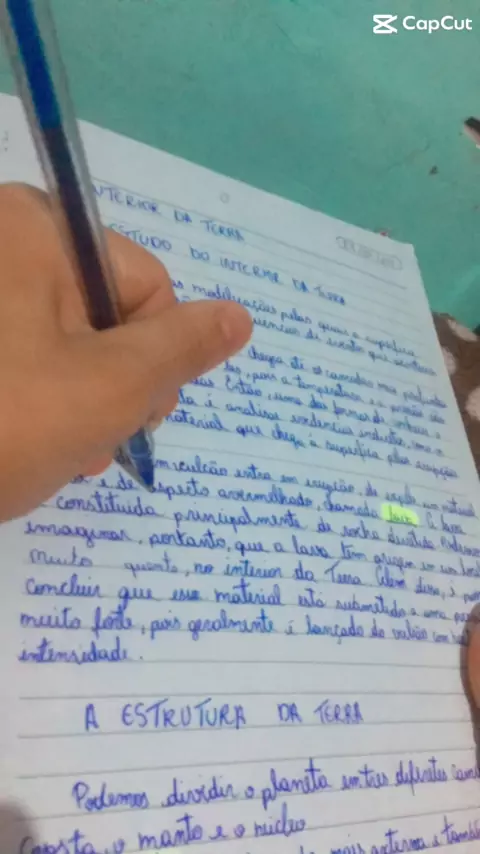 CapCut
INTERIOR DA TERRA
ESTUDO DO INTERIOR DA TERRA
as modificações pelas quais a superfície
de eventos que acontece
chega até as camadas mais profundas
pois a temperatura e a pressão são
Então, uma das formas de
é analisar evidências indiretas, como o
material que chega à superfície pelas erupções
vulcão entra em erupção, ele expele um material
e de aspecto avermelhado, chamado lava. A lava
constituída principalmente de rocha derretida Podemos
imaginar, portanto, que a lava tem origem em um local
muito quente, no interior da Terra Além disso, é
concluir que esse material está submetido a uma
muito forte, pois geralmente é lançado do vulcão com
intensidade.
A ESTRUTURA DA TERRA
Podemos dividir o planeta em tres diferentes
Crosta, o manto e o núcleo
mais externa e também